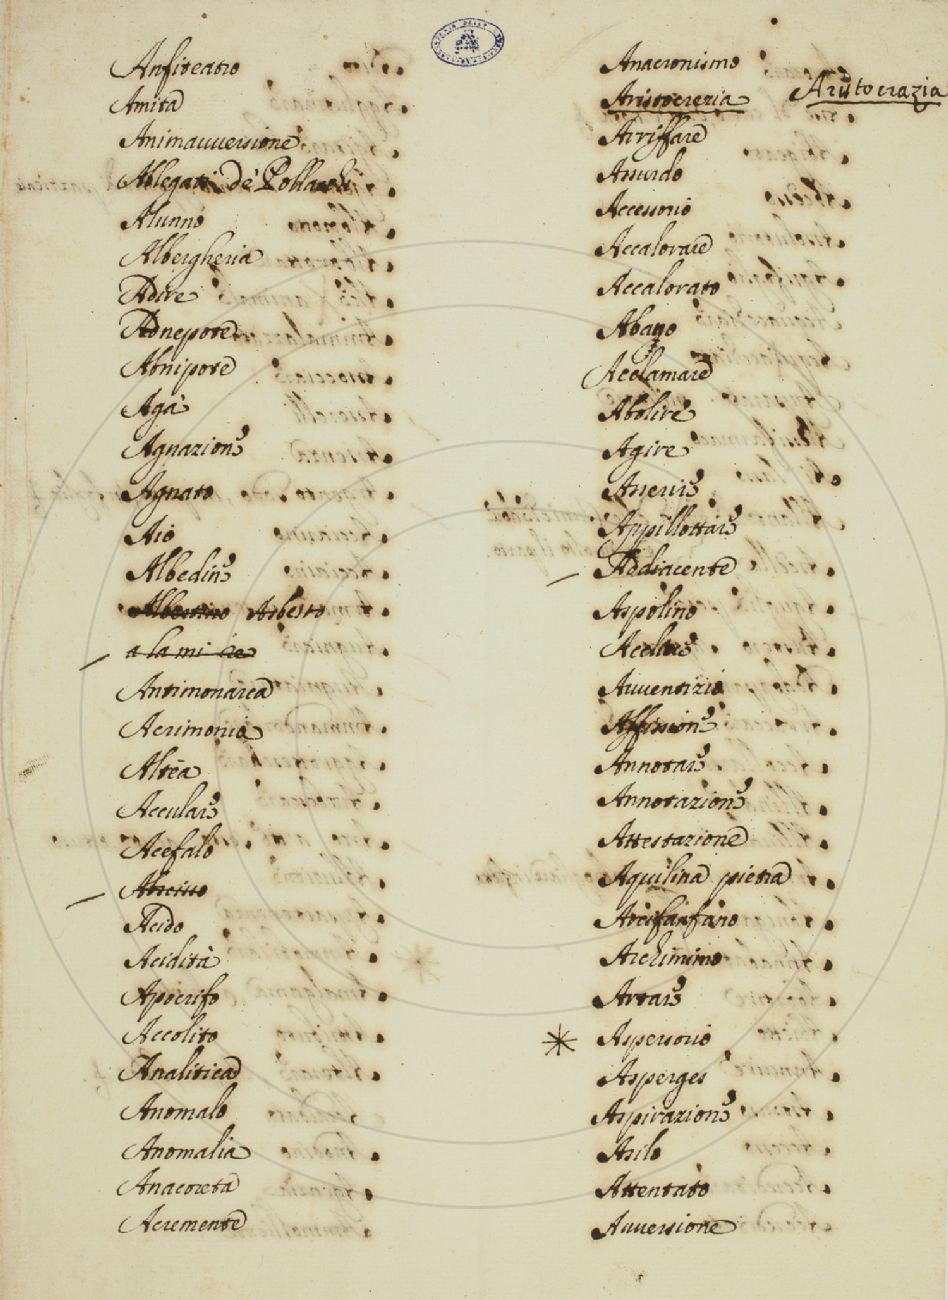 Anfiteatro
Amita
Animauversione
Ablegati de' Pollacchi
Alunno
Albergheria
Adire
Adnepote
Abnipote
Agà
Agnazione
Agnato
Aio
Albedine
Arbesto
a la mi re
Antimonarca
Acrimonia
Altéa
Acculare
Acefalo
Acido
Acidità
Apocrifo
Accolito
Analitica
Anomalo
Anomalia
Anacoreta
Acremente
Anacronismo
Aristocrezia Aristocrazia
Arriffare
Assurdo
Accessorio
Accalorare
Accalorato
Abaco
Acclamare
Abolire
Agire
Appillottare
Addiacente
Aspolino
Auventizio
Affissione
Annotare
Annotazione
Attestazione
Aquilina pietra
Arcifanfano
Archimimo
Artare
Aspersorio
Asperges
Aspirazione
Asilo
Attentato
Auversione